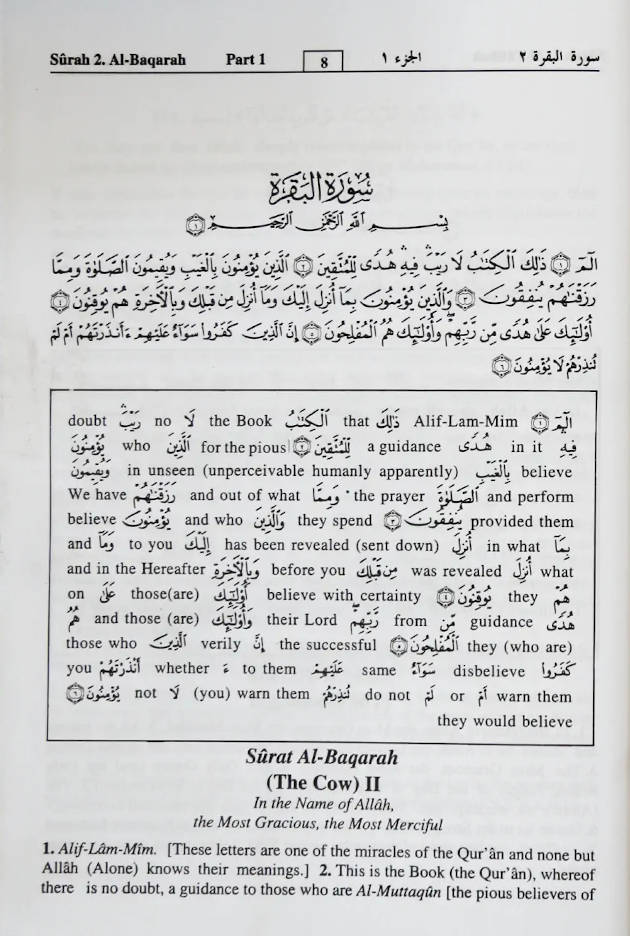 Sûrah 2. Al-Baqarah Part 1 8 الجزء ١ سورة البقرة ٢
سُورَةُ الْبَقَرَةِ
بِسْمِ اللَّهِ الرَّحْمَٰنِ الرَّحِيمِ ۝١
الٓمٓ ۝١ ذَٰلِكَ الْكِتَٰبُ لَا رَيْبَ ۛ فِيهِ ۛ هُدًى لِّلْمُتَّقِينَ ۝٢ الَّذِينَ يُؤْمِنُونَ بِالْغَيْبِ وَيُقِيمُونَ الصَّلَوٰةَ وَمِمَّا
رَزَقْنَٰهُمْ يُنفِقُونَ ۝٣ وَالَّذِينَ يُؤْمِنُونَ بِمَا أُنزِلَ إِلَيْكَ وَمَا أُنزِلَ مِن قَبْلِكَ وَبِالْأَخِرَةِ هُمْ يُوقِنُونَ ۝٤
أُوْلَٰٓئِكَ عَلَىٰ هُدًى مِّن رَّبِّهِمْ ۖ وَأُوْلَٰٓئِكَ هُمُ الْمُفْلِحُونَ ۝٥ إِنَّ الَّذِينَ كَفَرُوا سَوَآءٌ عَلَيْهِمْ ءَأَنذَرْتَهُمْ أَمْ لَمْ
تُنذِرْهُمْ لَا يُؤْمِنُونَ ۝٦
الٓمٓ ۝١ Alif-Lam-Mim ذَٰلِكَ that الْكِتَٰبُ the Book لَا no رَيْبَ ۛ doubt
فِيهِ in it هُدًى a guidance لِّلْمُتَّقِينَ ۝٢ for the pious الَّذِينَ who يُؤْمِنُونَ
believe بِالْغَيْبِ in unseen (unperceivable humanly apparently) وَيُقِيمُونَ
and perform الصَّلَوٰةَ the prayer وَمِمَّا and out of what رَزَقْنَٰهُمْ We have
provided them يُنفِقُونَ ۝٣ they spend وَالَّذِينَ and who يُؤْمِنُونَ believe
بِمَا in what أُنزِلَ has been revealed (sent down) إِلَيْكَ to you وَمَا and
what أُنزِلَ was revealed مِن قَبْلِكَ before you وَبِالْأَخِرَةِ and in the Hereafter
هُمْ they يُوقِنُونَ ۝٤ believe with certainty أُوْلَٰٓئِكَ those(are) عَلَىٰ on
هُدًى guidance مِّن from رَّبِّهِمْ ۖ their Lord وَأُوْلَٰٓئِكَ and those (are) هُمُ
they (who are) الْمُفْلِحُونَ ۝٥ the successful إِنَّ verily الَّذِينَ those who
كَفَرُوا disbelieve سَوَآءٌ same عَلَيْهِمْ to them ءَ whether أَنذَرْتَهُمْ you
warn them أَمْ or لَمْ do not تُنذِرْهُمْ (you) warn them لَا not يُؤْمِنُونَ ۝٦
they would believe
Sûrat Al-Baqarah
(The Cow) II
In the Name of Allâh,
the Most Gracious, the Most Merciful
1. Alif-Lâm-Mîm. [These letters are one of the miracles of the Qur'ân and none but
Allâh (Alone) knows their meanings.] 2. This is the Book (the Qur'ân), whereof
there is no doubt, a guidance to those who are Al-Muttaqûn [the pious believers of